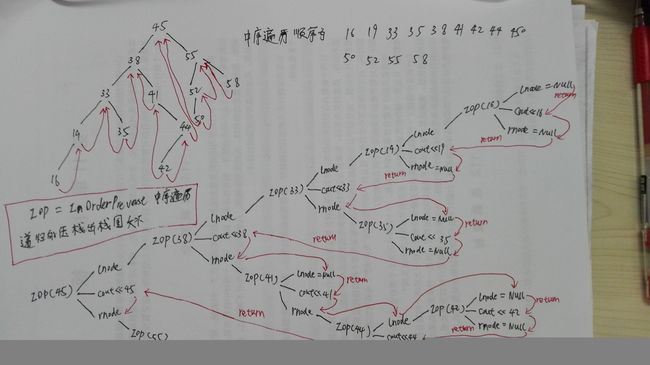 45
中序遍历顺序为 16 19 33 35 38 41 42 44 45
50 52 55 58
38 55
33 41 52 58
19 35 44 50
16 42
IOP = InOrderPrevease 中序遍历
递归的压栈的栈图长六
IOP(16) lnode=Null return
cout<<16
rnode=Null
IOP(19) lnode
cout<<19 return
rnode=Null
IOP(33) lnode
cout<<33 return
rnode
IOP(35) lnode=Null return
cout<<35
rnode=Null
IOP(38) lnode
cout<<38 return
rnode
IOP(41) lnode=Null return
cout<<41
rnode
IOP(45) lnode
cout<<45
rnode
IOP(42) lnode=Null return
cout<<42
return rnode=Null
IOP(44) lnode
cout<<44
IOP(55)